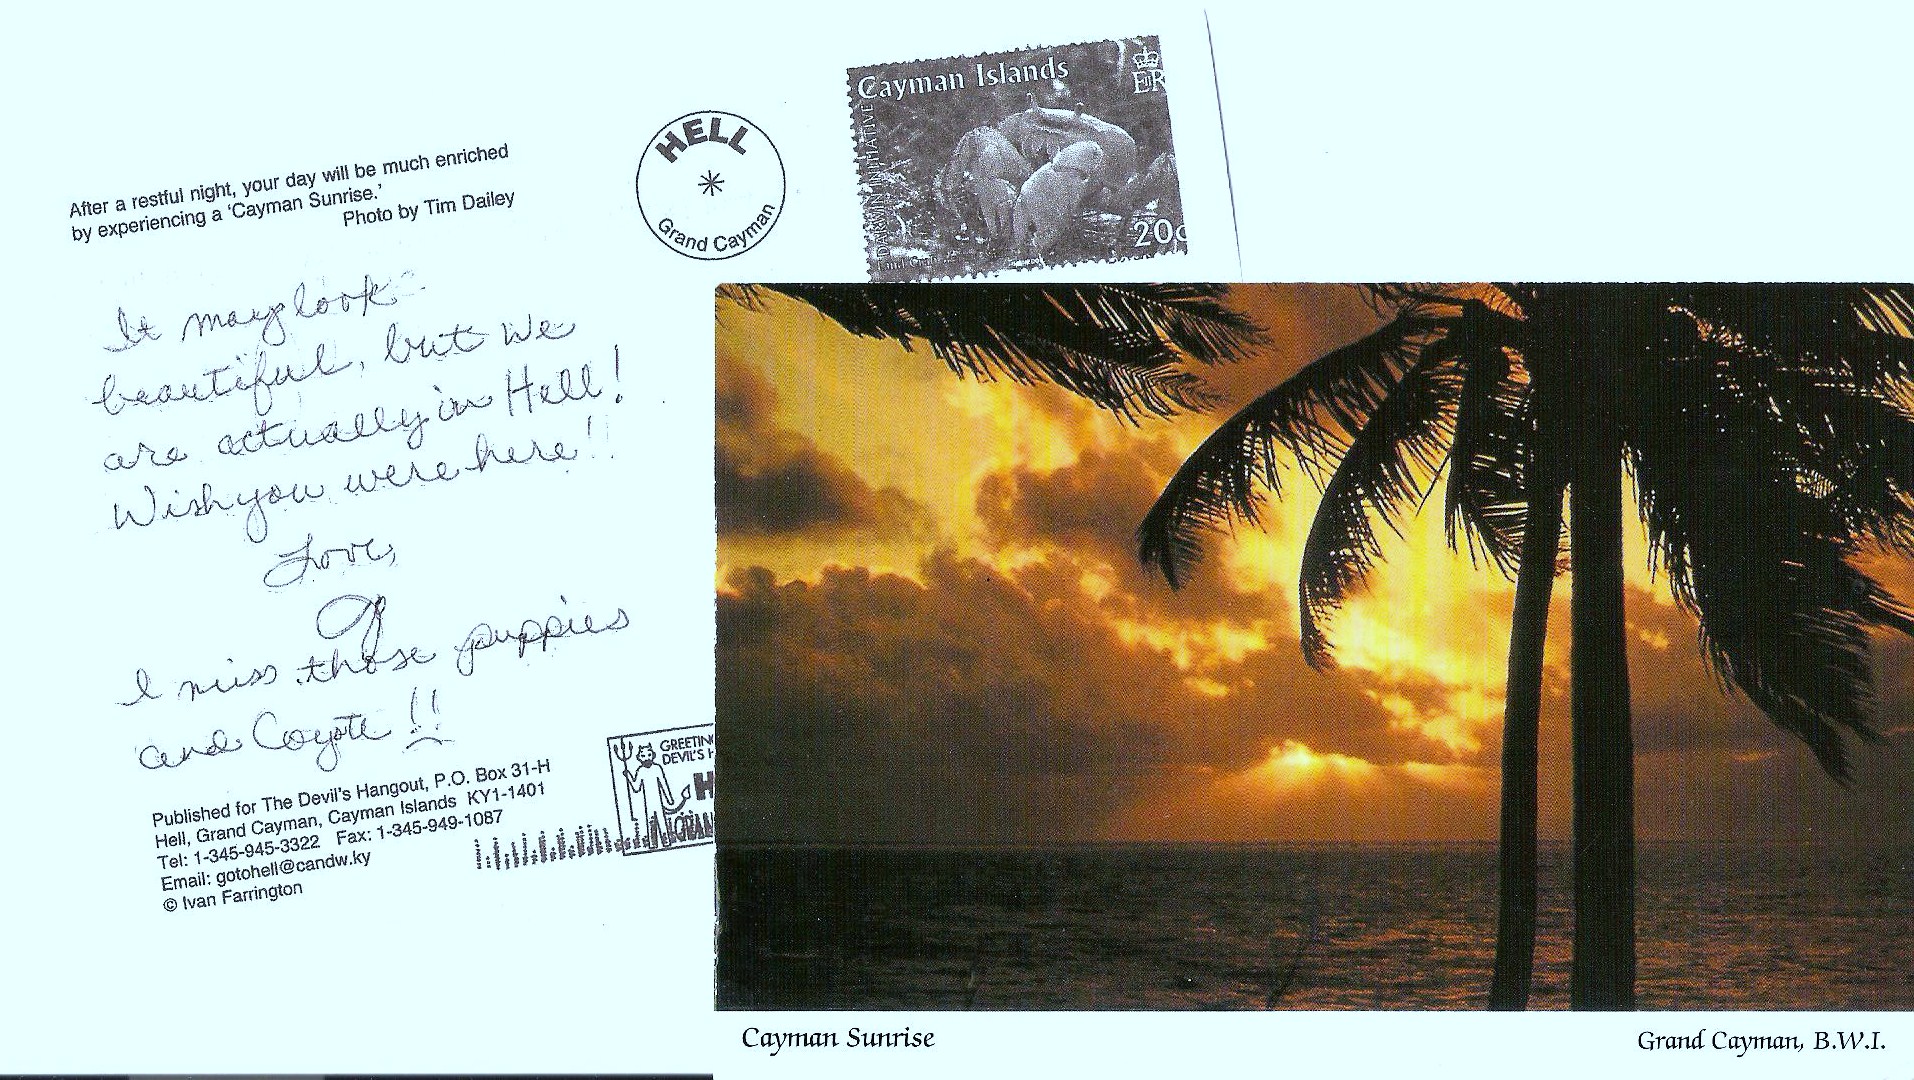 After a restful night, your day will be much enriched
by experiencing a 'Cayman Sunrise.'
Photo by Tim Dailey
HELL
Grand Cayman
Cayman Islands
ER
DARWIN INITIATIVE
20c
It may look
beautiful, but we
are actually in Hell!
Wish you were here!!
Love,
I miss those puppies
and Coyote!!
Published for The Devil's Hangout, P.O. Box 31-H
Hell, Grand Cayman, Cayman Islands KY1-1401
Tel: 1-345-945-3322 Fax: 1-345-949-1087
Email: gotohell@candw.ky
© Ivan Farrington
GREETIN
DEVIL'S H
H
Cayman Sunrise
Grand Cayman, B.W.I.